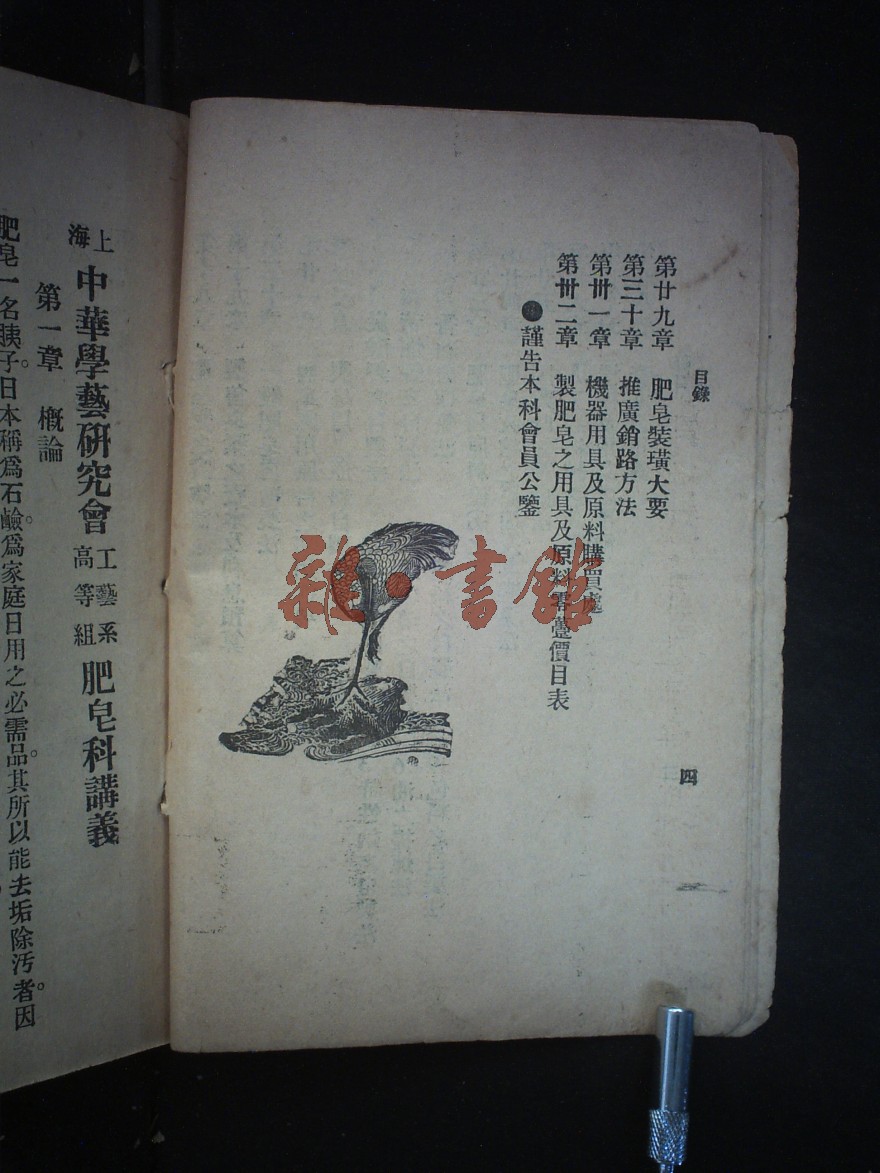 目錄
第廿九章 肥皂裝璜大要
第三十章 推廣銷路方法
第卅一章 機器用具及原料購買處
第卅二章 製肥皂之用具及原料零躉價目表
●謹告本科會員公鑒
四
雜·書館
上海 中華學藝研究會 工藝系 高等組 肥皂科講義
第一章 概論
肥皂一名胰子。日本稱爲石鹼。爲家庭日用之必需品。其所以能去垢除汚者。因